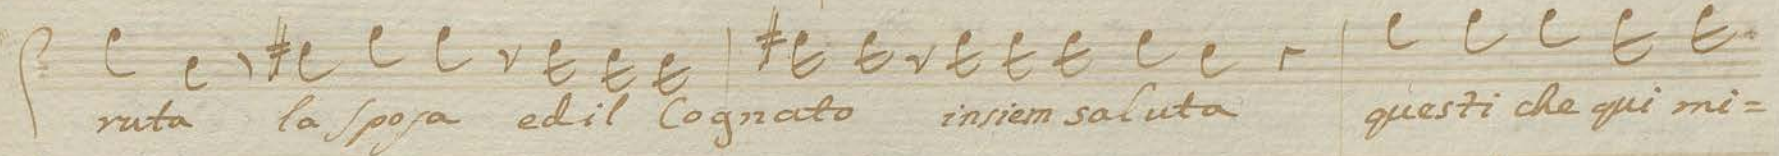 ruta la sposa ed il Cognato insiem saluta questi che qui mi=